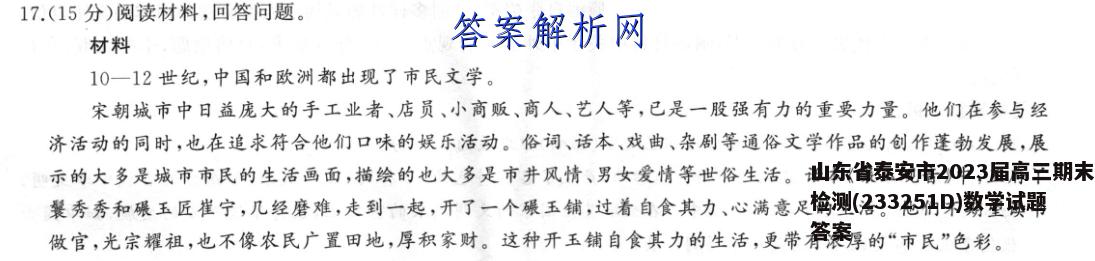 17.(15分)阅读材料,回答问题。
答案解析网
材料
10—12世纪,中国和欧洲都出现了市民文学。
宋朝城市中日益庞大的手工业者、店员、小商贩、商人、艺人等,已是一股强有力的重要力量。他们在参与经
济活动的同时,也在追求符合他们口味的娱乐活动。俗词、话本、戏曲、杂剧等通俗文学作品的创作蓬勃发展,展
示的大多是城市市民的生活画面,描绘的也大多是市井风情、男女爱情等世俗生活。
山东省泰安市2023届高三期末
检测(233251D)数学试题
答案
鬟秀秀和碾玉匠崔宁,几经磨难,走到一起,开了一个碾玉铺,过着自食其力、心满意足
做官,光宗耀祖,也不像农民广置田地,厚积家财。这种开玉铺自食其力的生活,更带有浓厚的“市民”色彩。